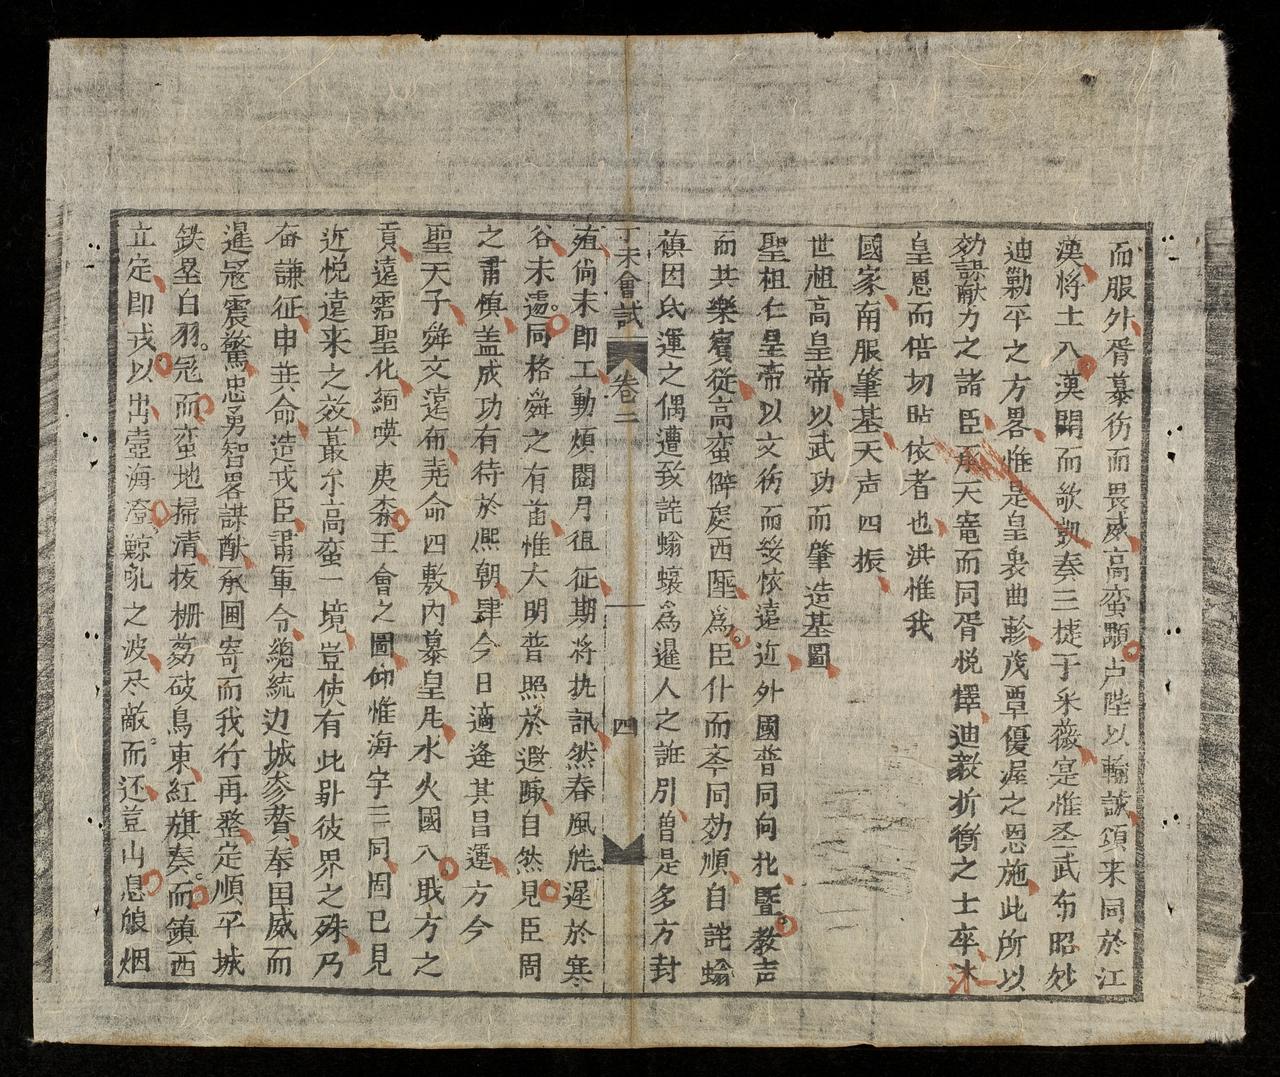 而服外胥慕彷而畏威高蛮顒卢陛以輸誠頌来同於江
漢将士八漢開而歌凯奏三捷于采薇寔惟圣武布昭妙
迪勦平之方畧惟是皇衷曲軫茂覃優渥之恩施此所以
効謀献力之諸臣承天寵而同胥悦懌迪教折衝之士卒沐
皇恩而倍切貼依者也洪惟我
國家南服筆基天声四振
世祖高皇帝以武功而肇造基圖
聖祖仁皇帝以文彷而綏恢遠近外國普同向化暨教声
而共樂賓從高蛮僻処西陲為臣仆而夲同効順自詫螉
蘱因氏運之偶遭致詫螉蠰為暹人之誑引曽是多方封
丁未會試 卷二 四
殖尚未即工動煩閫月徂征期将执訊然春風旄遅於寒
谷未遍同格舜之有苗惟大明普照於遐陬自然見臣周
之肅慎盖成功有待於熙朝肆今日適逄其昌運方今
聖天子舜文遠布尭命四敷内慕皇凡水火國八畋方之
貢遠霑聖化緬暎夷柰王會之圖仰惟海宇三同固已見
近悦遠来之效蕞尔高蛮一境豈使有此疆彼界之殊乃
奋謙征申共命造戎臣肅軍令總統边城参賛奉国威而
暹寇震驚忠勇智畧謀猷承閫寄而我行再整定順平城
鉄壘白羽冠而蛮地掃清拔栅芻破鳥東紅旗奏而鎮西
立定即戎以出壼海澄鯨虬之波尽敵而还豈山息艆烟